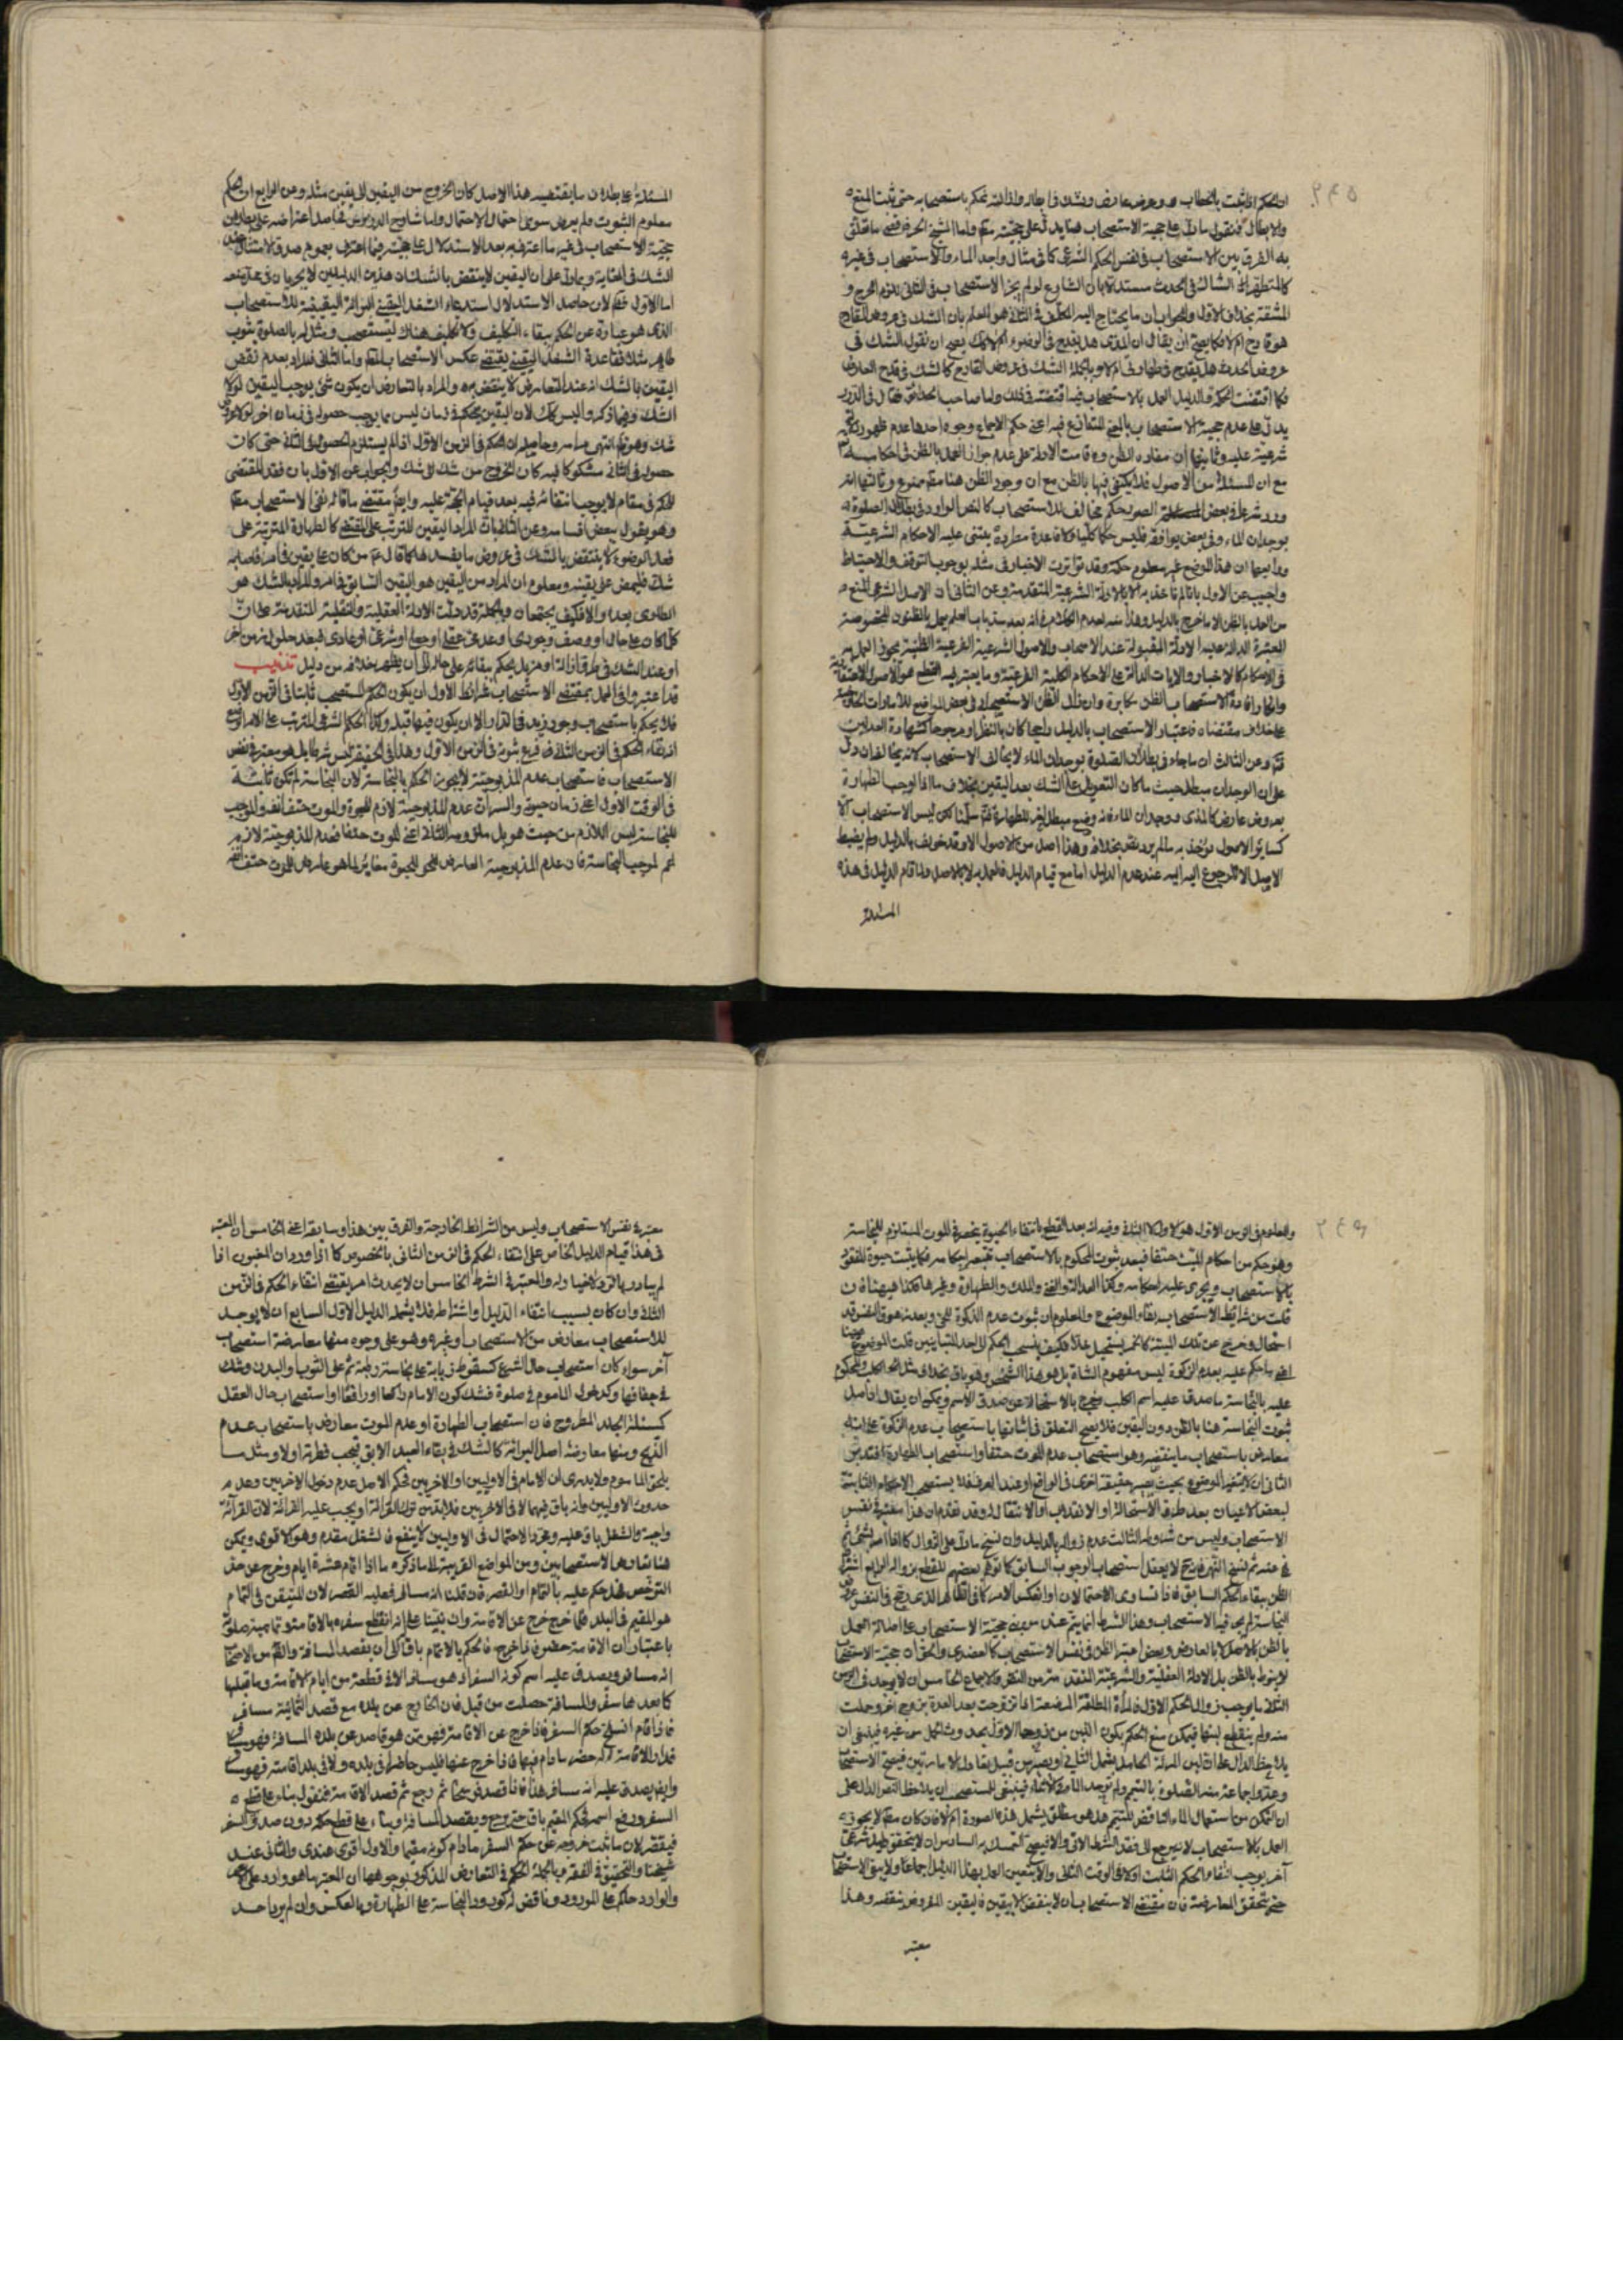 ان الحكم اذا ثبت بالخطاب
والابطال فنقول ما دل على حجية الاستصحاب
به الفرق بين الاستصحاب في نفس الحكم الشرعي كما في مثال واجد الماء والاستصحاب في غيره
كالمتطهر اذا شك في الحدث مستدلا بان الشارع لو لم يجز الاستصحاب في الثاني لزم الحرج و
المشقة بخلاف الاول والجواب ان ما يحتاج اليه المكلف في الثاني هو العلم بان الشك في عروض القادح
هو قادح ام لا فكما يصح ان يقال ان المذى هل يقدح في الوضوء ام لا كك يصح ان نقول الشك في
عروض الحدث هل يقدح في طهارتي ام لا وبالجملة الشك في عروض القادح كالشك في قدح العارض
فكما اقتضت الحكمة والدليل العمل بالاستصحاب فيما اقتضته في ذلك واما صاحب الحدائق فقال في الدرر
يدل على عدم حجية الاستصحاب بالمعنى المتنازع فيه اعني حكم الاجماع وجوه احدها عدم ظهور دلالة
شرعية عليه وثانيها ان مفاده الظن وقد قامت الادلة على عدم جواز العمل بالظن في احكامه تعالى
مع ان المسئلة من الاصول فلا يكتفى فيها بالظن مع ان وجود الظن هنا مقم ممنوع وثالثها انه
ورد شرعا في بعض الصور حكم مخالف للاستصحاب كالنص الوارد في بطلان الصلوة
بوجدان الماء وفي بعض يوافقه فليس حكما كليا ولا قاعدة مطردة يبتنى عليه الاحكام الشرعية
ورابعها ان هذا الموضع غير معلوم حكمه وقد تواترت الاخبار في مثله بوجوب التوقف والاحتياط
واجيب عن الاول بانا لم ناخذ به الا للادلة الشرعية المتقدمة وعن الثاني ان الاصل الشرعي المنع
من العمل بالظن الا ما خرج بالدليل وهذا منه لعدم الكلام في انه بعد سد باب العلم يعمل بالظنون المخصوصة
المعتبرة الدالة عليه الادلة المقبولة عند الاصحاب والاصول الشرعية الفرعية الظنية يجوز العمل
في الاحكام كالاخبار والايات الدالة على الاحكام الكلية الفرعية وما يعتبر فيه القطع هو الاصول الاعتقادية
وانكار افادة الاستصحاب الظن مكابرة وان زال الظن الاستصحابي في بعض المواضع للامارات الحالية
على خلاف مقتضاه فاعتبار الاستصحاب بالدليل راجحا كان بالنظر او مرجوحا كشهادة العدلين
فتم وعن الثالث ان ما جاء في بطلان الصلوة بوجدان الماء لا يخالف الاستصحاب لانه يخالف ان دل
على ان الوجدان مبطل حيث ما كان التعويل على الشك بعد اليقين بخلاف ما اذا اوجب الطهارة
بعروض عارض كالمذى ووجدان الماء فانه وضع مبطل اخر للطهارة فتم سلمنا لكن ليس الاستصحاب الا
كساير الاصول يؤخذ به ما لم يرد نص بخلافه وهذا اصل من الاصول الا وقد خولف بالدليل ولم يضبط
الاصل الا للرجوع اليه اليه عند عدم الدليل اما مع قيام الدليل فالعمل به لا بالاصل ولما قام الدليل في هذه
المسئلة
المسئلة على بطلان ما يقتضيه هذا الاصل كان الخروج من اليقين الى يقين مثله وعن الرابع ان الحكم
معلوم الثبوت ولم يعرض سوى احتمال الاحتمال واما شارح الدروس فحاصل اعتراضه على بطلان
حجية الاستصحاب في غير ما اعترف به بعد الاستدلال على حجيته فيما اعترف بعموم صدق الامتثال عند
الشك في الغاية وبما دل على ان اليقين لا ينتقض بالشك ان هذين الدليلين لا يجريان في محل منعه
اما الاول فظ لان حاصل الاستدلال استدعاء الشغل اليقيني البرائة اليقينية للاستصحاب
الذي هو عبارة عن الحكم ببقاء التكليف ولا تكليف هناك ليستصحب ومثل له بالصلوة بثوب
طاهر شك فقاعدة الشغل اليقيني يقتضي عكس الاستصحاب بالمقم واما الثاني فلمراد بعدم نقض
اليقين بالشك انه عند التعارض لا ينتقض به والمراد بالتعارض ان يكون شئ يوجب اليقين لولا
الشك وفيما ذكروا ليس كك لان اليقين بحكم في زمان ليس مما يوجب حصوله في زمان اخر لولا عروض
شك وهو ظ انتهى كلامه وحاصله ان الحكم في الزمن الاول اذا لم يستلزم الحصول في الثاني حتى كان
حصوله في الثاني مشكوكا فيه كان الخروج من شك الى شك والجواب عن الاول بان فقد المقتضي
للحكم في مقام لا يوجب انتفائه فيه بعد قيام الحجة عليه وايضا مقتضى ما قاله نفي الاستصحاب مطم
وهو يقول ببعض اقسامه وعن الثاني بان المراد اليقين المترتب على المقتضي كالطهارة المترتبة على
فعل الوضوء لا ينتقض بالشك في عروض ما يفسدها كما قال ع من كان على يقين فاصابه
شك فليمض على يقينه ومعلوم ان المراد من اليقين هو اليقين السابق في امر والمراد بالشك هو
الطارى بعده والا فكيف يجتمعان وبالجملة قد دلت الادلة العقلية والنقلية المتقدمة على ان
كل ما كان على حال او وصف وجودي او عدمي عقلي او وضعي او شرعي او عادي فبعد حلول زمن اخر
او عند الشك في طرو ازالة او مزيل يحكم ببقائه على حاله الى ان يظهر خلافه من دليل تذنيب
قد اعتبروا في العمل بمقتضى الاستصحاب شرائط الاول ان يكون الحكم المستصحب ثابتا في الزمن الاول
فلا يحكم باستصحاب وجود زيد في الدار الا ان يكون فيها قبله وكذا الحكم الشرعي المترتب على الامر الواقع
ان بقاء الحكم في الزمن الثاني فرع ثبوته في الزمن الاول وهذا في الحقيقة ليس شرطا بل هو معتبر في نفس
الاستصحاب فاستصحاب عدم المذبوحية لا يجوز الحكم بالنجاسة لان النجاسة لم تكن ثابتة
في الوقت الاول اعني زمان حيوته والسر ان عدم المذبوحية لازم للحيوة والموت حتف انفه والموجب
للنجاسة ليس اللازم من حيث هو بل ملزومه الثاني اعني الموت حتفا فعدم المذبوحية لازم
اعم لموجب النجاسة فان عدم المذبوحية العارض للحيوة مغاير لما هو عارض للموت حتف انفه
والمعلوم في الزمن الاول هو الاول لا الثاني وفيه انه بعد القطع بانتفاء الحيوة ينحصر في الموت المستلزم للنجاسة
وهو حكم من احكام الميت حتفا فبعد ثبوت المحكوم بالاستصحاب تتبعه احكامه فكما يثبت حيوة المفقود
بالاستصحاب ويجرى عليه احكامه وكذا العدالة والفسق والملك والطهارة وغيرها فكذا هيهنا فان
قلت من شرائط الاستصحاب بقاء الموضوع والمعلوم ان ثبوت عدم الذكوة للحي وبعد زهوق النفس قد
استحال وخرج عن تلك الميتة كالخمر يستحيل خلا فكيف ينسحب الحكم الى احد المتباينين قلت الموضوع
اعني ما حكم عليه بعدم الذكوة ليس مفهوم الشاة بل هو هذا الشخص وهو باق بخلاف مثل الكلب والمحكوم
عليه بالنجاسة ما صدق عليه اسم الكلب فيخرج بالاستحالة عن صدق الاسم ويمكن ان يقال ان اصل
ثبوت النجاسة هنا بالظن دون اليقين فلا يصح التعلق في اثباتها باستصحاب عدم الذكوة على انه
معارض باستصحاب ما ينقضه وهو استصحاب عدم الموت حتفا واستصحاب الطهارة فتدبر
الثاني ان لا يتغير الموضوع بحيث يصير حقيقة اخرى في الواقع او عند العرف فلا يستصحب الاحكام الثابتة
لبعض الاعيان بعد طرو الاستحالة او الانقلاب او الانتقال له وقد تقدم ان هذا معتبر في نفس
الاستصحاب وليس من شروطه الثالث عدم زواله بالدليل وان نسخ ما دل على الزوال كما اذا امر بشئ ثم
نهى عنه ثم نسخ النهي فانه ح لا يعقل استصحاب الوجوب السابق كما توهم بعضهم للقطع بزواله الرابع اشتراط
الظن ببقاء الحكم السابق فاذا تساوى الاحتمالان او انعكس الامر كما في الطاهر الذي يقع في النفس عروض
النجاسة لم يجر فيه الاستصحاب وهذا الشرط انما يتم عند من يبنى حجية الاستصحاب على اصالة العمل
بالظن الا ما خرج بالعارض وبعض اعتبر الظن في نفس الاستصحاب كالعضدي والحق ان حجية الاستصحاب
لا ينوط بالظن بل الادلة العقلية والشرعية المتقدمة من النص والاجماع الخامس ان لا يوجد في الزمن
الثاني ما يوجب زوال الحكم الاول فالمرأة المطلقة المرضعة اذا تزوجت بعد العدة بزوج اخر وحملت
منه ولم ينقطع لبنها فيمكن منع الحكم بكون اللبن من زوجها الاول بحدوث الحمل من غيره فينبغي ان
يلاحظ الدال على ان لبن المرئة الحامل يشمل الثاني او يصير من قبيل تعارض الامارتين فيصح الاستصحاب
وعدوا جماعة منه الصلوة بالتيمم ولم يوجد الماء في الاثناء فينبغي للمستصحب ان يلاحظ النص الدال على
ان التمكن من استعمال الماء ناقض للتيمم هل هو مطلق يشمل هذه الصورة ام لا فان كان مطم لا يجوز
العمل بالاستصحاب لانه يرجع الى فقد الشرط الاتي والا فيصح التمسك به السادس ان لا يتحقق دليل شرعي
آخر يوجب انتفاء الحكم الثابت اولا في الوقت الثاني والا يتعين العمل بهذا الدليل اجماعا ولا يبقى الاستصحاب
حتى يتحقق المعارضة فان مقتضى الاستصحاب ان لا ينقض الا بيقين فاليقين المفروض ينقضه وهذا
معتبر
معتبر في نفس الاستصحاب وليس من الشرائط الخارجة والفرق بين هذا وسابقه اعني الخامس ان المعتبر
في هذا قيام الدليل الخاص على انتفاء الحكم في الزمن الثاني بالخصوص كما اذا ورد ان المغبون اذا
لم يبادر بالرد لا خيار له والمعتبر في الشرط الخامس ان لا يحدث امر يقتضي انتفاء الحكم في الزمن
الثاني وان كان بسبب انتفاء الدليل واشتراطه فلا يشمله الدليل الاول السابع ان لا يوجد
للاستصحاب معارض من الاستصحاب او غيره وهو على وجوه منها معارضة استصحاب
آخر سواء كان استصحاب حال الشرع كسقوط ذبابة على نجاسة رطبة ثم على الثوب او البدن وشك
في جفافها وكدخول الماموم في صلوة فشك كون الامام راكعا او رافعا او استصحاب حال العقل
كمسئلة الجلد المطروح فان استصحاب الطهارة او عدم الموت معارض باستصحاب عدم
الذبح ومنها معارضة اصل البرائة كالشك في بقاء العبد الابق فيجب فطرته اولا ومثل ما
يلحق الماموم ولا يدري ان الامام في الاوليين او الاخريين فحكم الاصل عدم دخول الاخريين وعدم
حدوث الاوليين وانه باق فيهما لا في الاخريين فلا بد من ترك القرائة او يجب عليه القرائة لان القرائة
واجبة والشغل باق عليه ومجرد الاحتمال في الاوليين لا ينفع فالشغل مقدم وهو الاقوى ويمكن
هنا تعارض الاستصحابين ومن المواضع القريبة لما ذكره ما اذا اتم عشرة ايام وخرج عن حد
الترخص فهل حكم عليه بالتمام او القصر فان قلنا انه مسافر فعليه القصر لان المتيقن في التمام
هو المقيم في البلد فكما خرج خرج عن الاقامة وان بنينا على انه انقطع سفره بالاقامة
باعتبار ان الاقامة حضور فاذا خرج فالحكم بالاتمام باق الى ان يقصد المسافة والقصر من الاصحاب
انه مسافر ويصدق عليه اسم كونه السفر اذ هو مسافر الا في قطعة من ايام الاقامة وما قبلها
كما بعدها سفر والمسافة حصلت من قبل فان الخارج عن بلده مع قصد الثمانية مسافر
فاذا قام انسلخ حكم السفر فاذا خرج عن الاقامة فهو ممن هو قاصد عن بلده المسافة فهو مسافر
فمدار الاقامة له حضر ما دام فيها فاذا خرج عنها فليس حاضرا في بلده ولا في بلد اقامته فهو مسافر
وايضا يصدق عليه انه مسافر هذا فاذا قصد فرسخا ثم رجع ثم قصد الاقامة فنقول بناء على قطع
السفر ورفع اسمه فحكم المقيم باق حتى يرجع ويقصد المسافة وبناء على قطع حكمه دون صدق السفر
فيقصر لان ما ثبت خروجه عن حكم السفر ما دام كونه مقيما والاول اقوى عندي والثاني عند
شيخنا والتحقيق في الفقه وبالجملة الحكم في التعارض المذكور بوجوهها ان المعتبر ما هو وارد على
والوارد حاكم على المورود وناقض له كورود النجاسة على الطهارة وبالعكس وان لم يرد احد